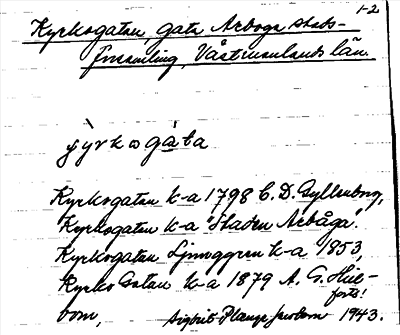 1-2
Kyrkogatan, gata Arboga stads-
församling, Västmanlands län.
Kyrkogatan k-a 1798 C. D. Gyllenborg,
Kyrkogatan k-a "Staden Arbåga".
Kyrkogatan Ljunggren k-a 1853,
Kyrko Gatan k-a 1879 A. G. Hül-
forts!
bom, Sigbrit Plænge 1943.